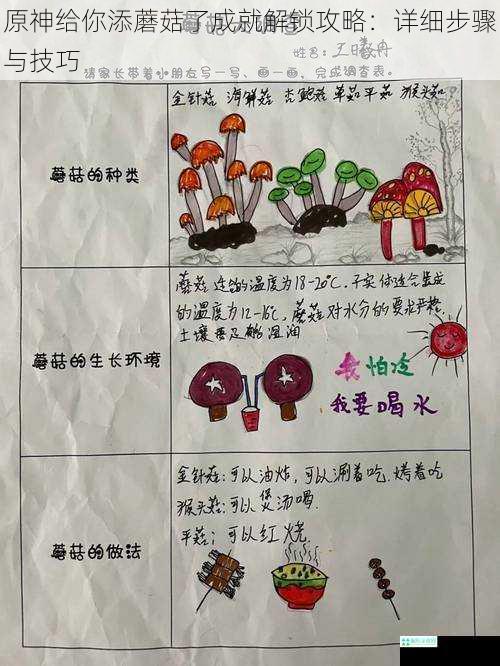 原神给你添蘑菇了成就解锁攻略：详细步骤
与技巧
姓名：王日羲舟
请家长带着小朋友写一写、画一画，完成调查表。
蘑菇的种类
金针菇 海鲜菇 杏鲍菇 草菇 平菇 猴头菇
蘑菇的生长环境
的温度为18-20℃.子实体适合生成
的温度为12-16℃，蘑菇对水分的要求严格.
土壤要足够湿润
我怕冷
我要喝水
蘑菇的做法
金针菇：可以油炸，可以涮着吃.烤着吃
猴头菇：可以煲汤喝.
平菇；可以红烧.